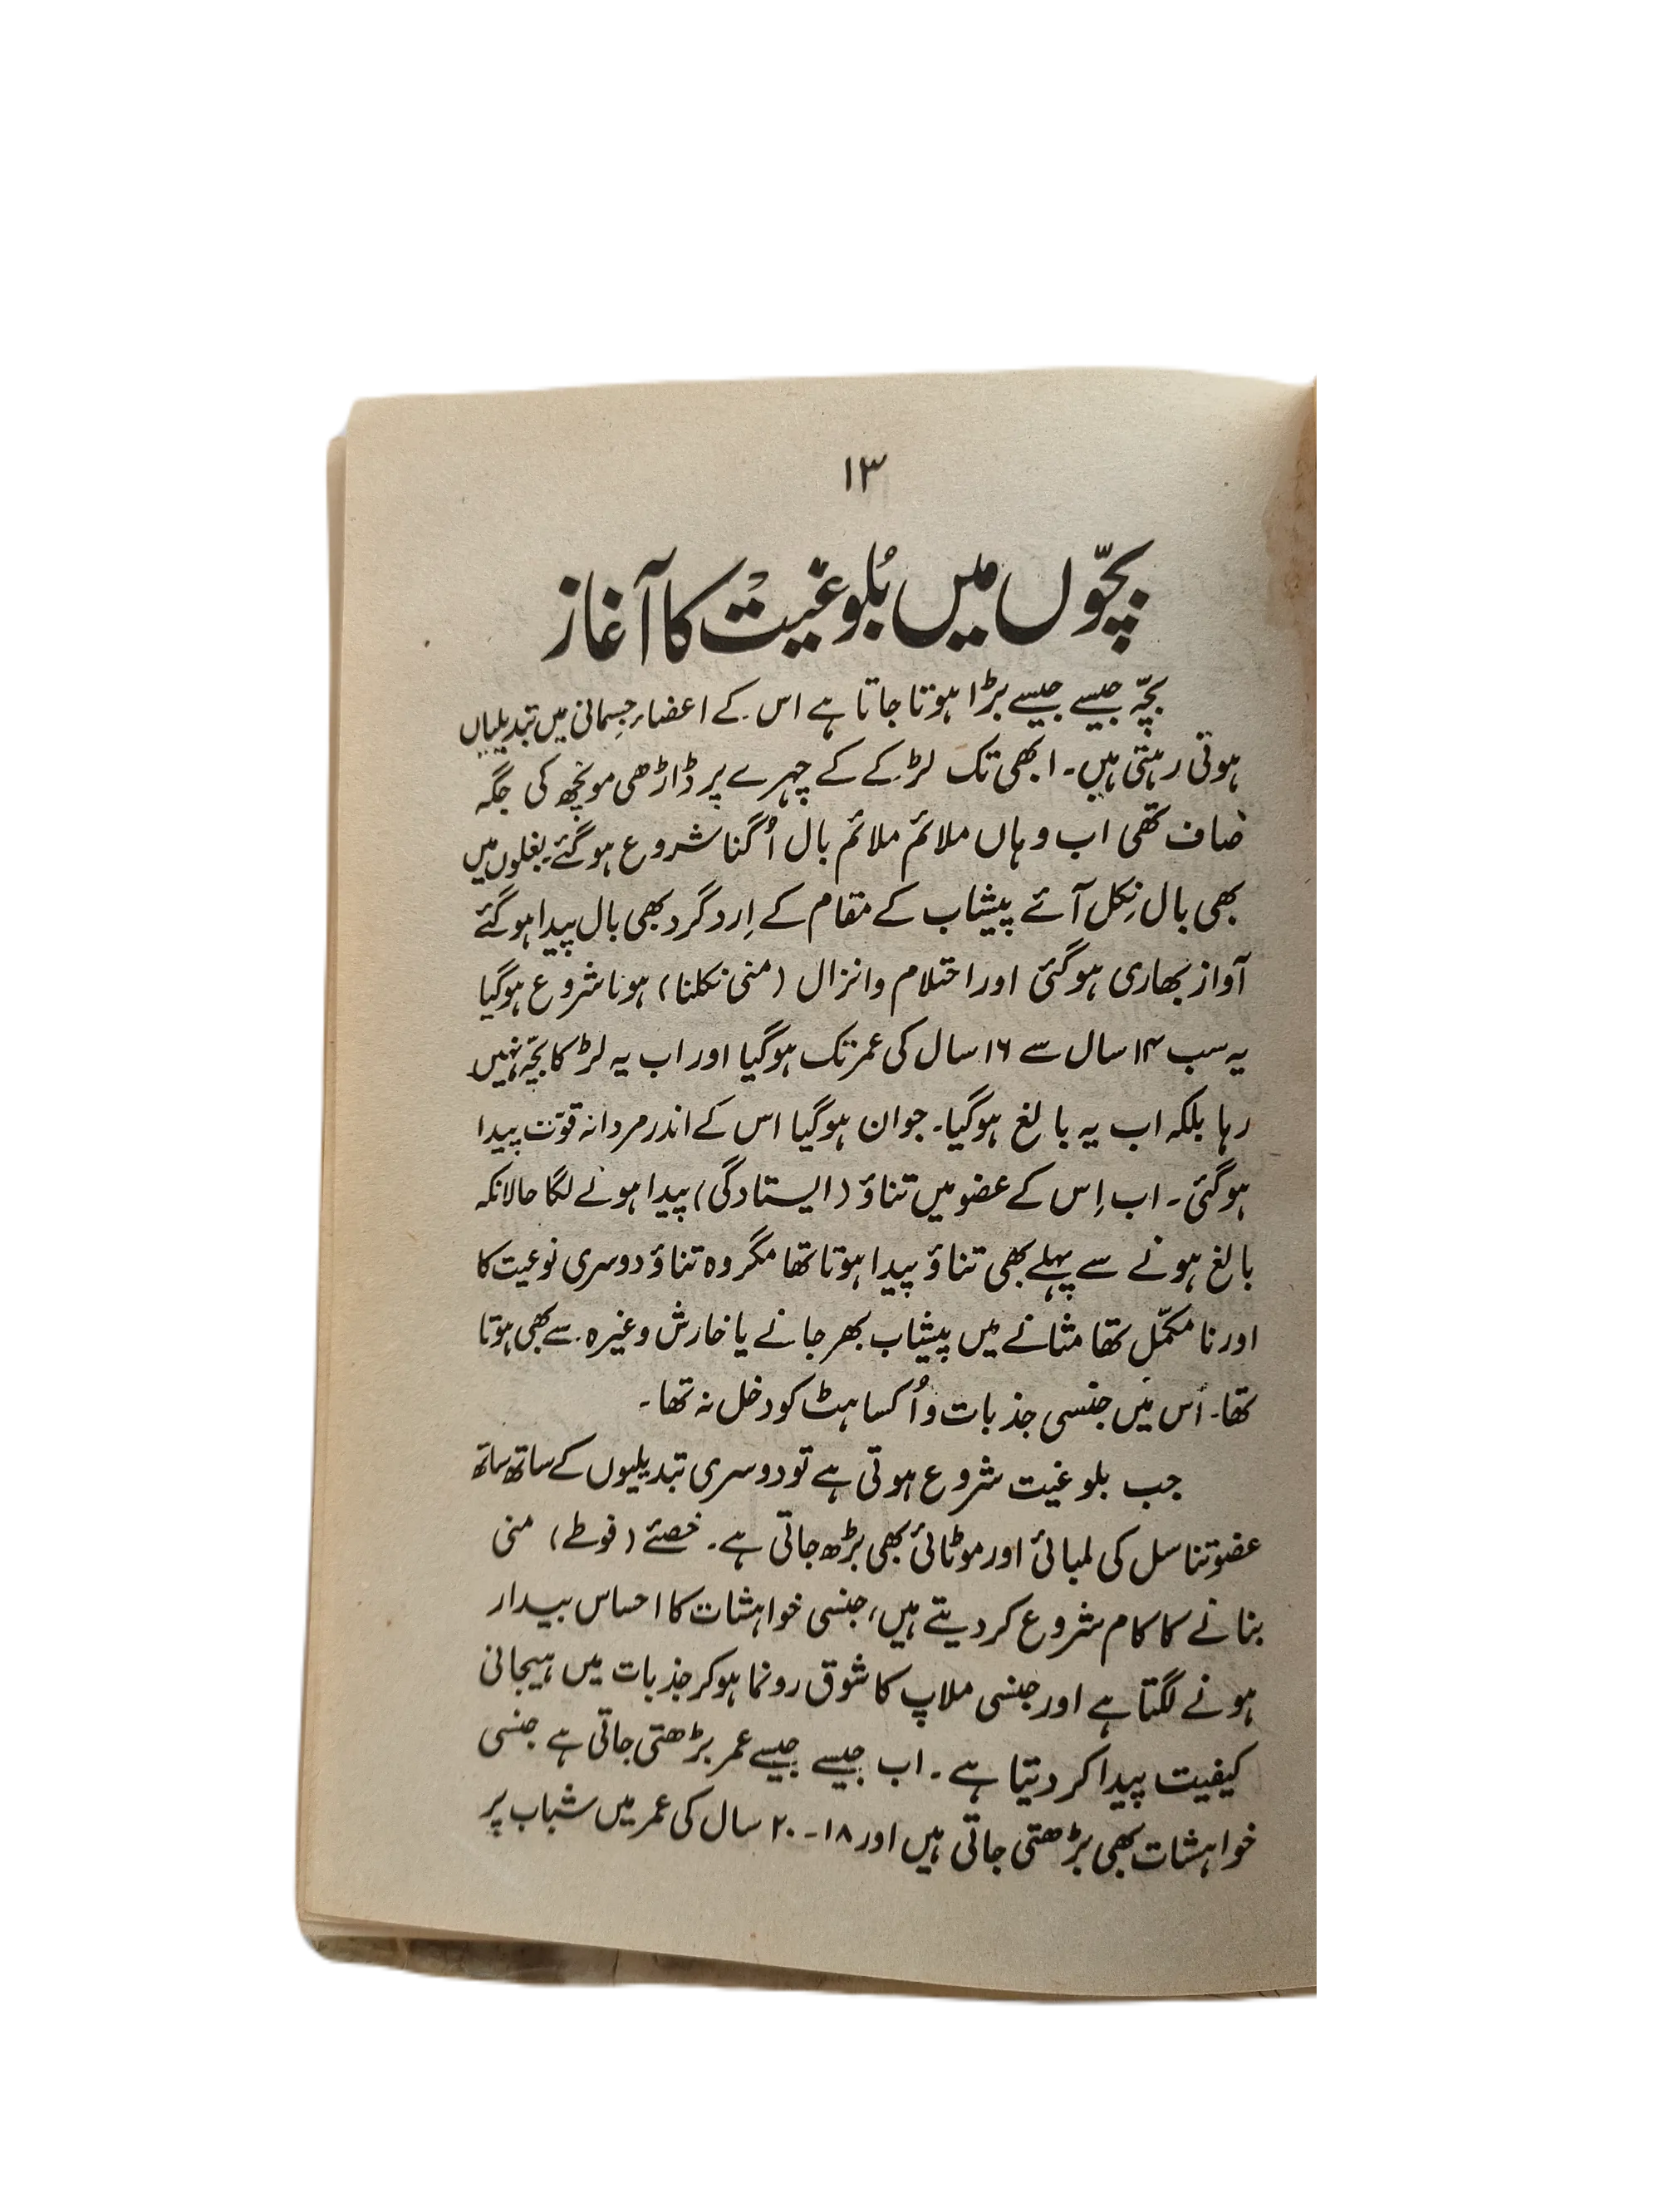 ۱۳
بچّوں میں بُلوغیت کا آغاز
بچّہ جیسے جیسے بڑا ہوتا جاتا ہے اس کے اعضاء جِسمانی میں تبدیلیاں
ہوتی رہتی ہیں۔ ابھی تک لڑکے کے چہرے پر ڈاڑھی مونچھ کی جگہ
صاف تھی اب وہاں ملائم ملائم بال اُگنا شروع ہوگئے۔ بغلوں میں
بھی بال نِکل آئے پیشاب کے مقام کے اِرد گرد بھی بال پیدا ہوگئے
آواز بھاری ہوگئی اور احتلام وانزال (منی نکلنا) ہونا شروع ہوگیا
یہ سب ۱۴ سال سے ۱۶ سال کی عمر تک ہوگیا اور اب یہ لڑکا بچّہ نہیں
رہا بلکہ اب یہ بالغ ہوگیا۔ جوان ہوگیا اس کے اندر مردانہ قوّت پیدا
ہوگئی۔ اب اِس کے عضو میں تناؤ (ایستادگی) پیدا ہونے لگا حالانکہ
بالغ ہونے سے پہلے بھی تناؤ پیدا ہوتا تھا مگر وہ تناؤ دوسری نوعیت کا
اور نامکمّل تھا مثانے میں پیشاب بھر جانے یا خارش وغیرہ سے بھی ہوتا
تھا۔ اُس میں جنسی جذبات و اُکساہٹ کو دخل نہ تھا۔
جب بلوغیت شروع ہوتی ہے تو دوسری تبدیلیوں کے ساتھ ساتھ
عضو تناسل کی لمبائی اور موٹائی بھی بڑھ جاتی ہے۔ خصئے (فوطے) منی
بنانے کا کام شروع کردیتے ہیں، جنسی خواہشات کا احساس بیدار
ہونے لگتا ہے اور جنسی ملاپ کا شوق رونما ہوکر جذبات میں ہیجانی
کیفیت پیدا کر دیتا ہے۔ اب جیسے جیسے عمر بڑھتی جاتی ہے جنسی
خواہشات بھی بڑھتی جاتی ہیں اور ۱۸۔۲۰ سال کی عمر میں شباب پر